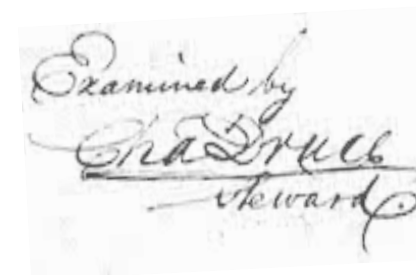 Examined by
Chas Druce
Steward